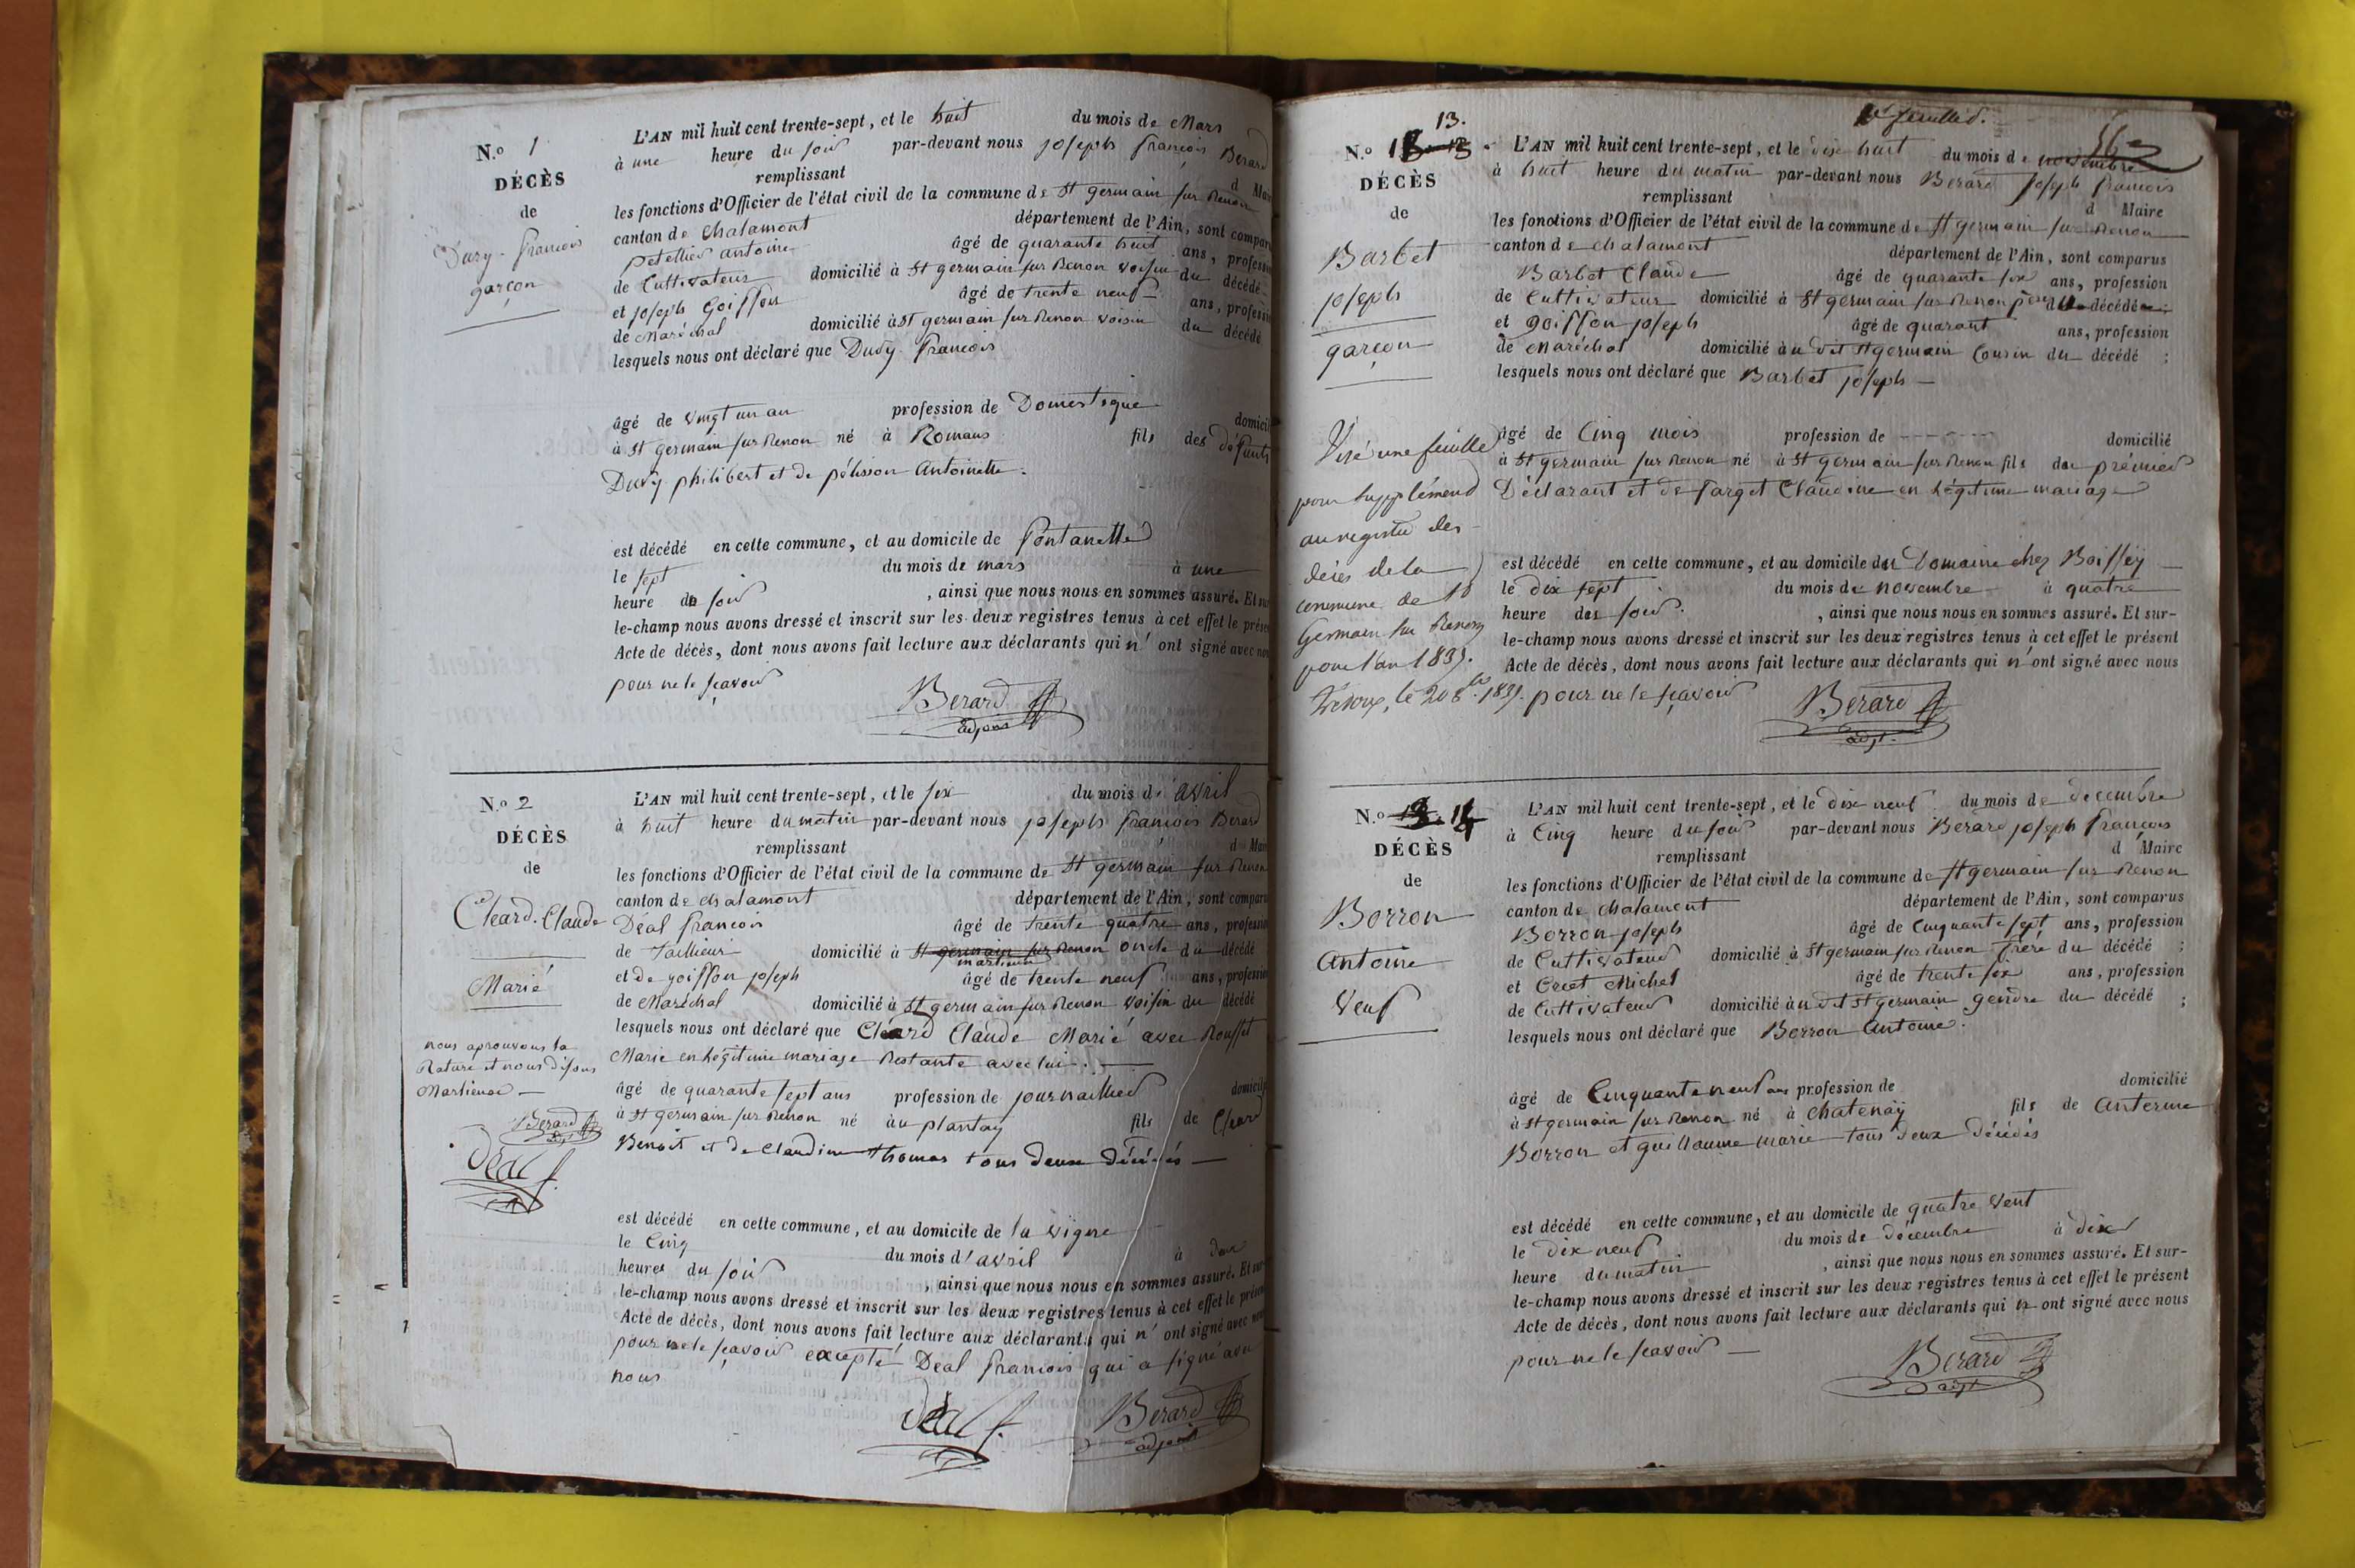 N.o 1
DÉCÈS
de
Duvy François
garçon
L'AN mil huit cent trente-sept, et le huit du mois de Mars
à une heure du soir par-devant nous joseph françois Berard
remplissant
les fonctions d'Officier de l'état civil de la commune de St germain sur Renon
canton de chalamont département de l'Ain, sont compar
petellier antoine âgé de quarante huit ans, professi
de Cultivateur domicilié à St germain sur Renon voisin du décédé
et joseph Goiffon âgé de trente neuf ans, professi
de Maréchal domicilié à St germain sur Renon voisin du décédé
lesquels nous ont déclaré que Duvy françois
âgé de vingt un an profession de Domestique domicil
à St germain sur Renon né à Romans fils des défunts
Duvy philibert et de pélisson Antoinette
est décédé en cette commune, et au domicile de fontanelle
le sept du mois de mars à une
heure du soir , ainsi que nous nous en sommes assuré. Et su
le-champ nous avons dressé et inscrit sur les deux registres tenus à cet effet le prése
Acte de décès, dont nous avons fait lecture aux déclarants qui n'ont signé avec no
pour ne le sçavoir
Berard
adjoint
N.o 2
DÉCÈS
de
Cleard Claude
Marié
nous aprouvons la
Rature et nous disons
Martieux
Berard
Déal f.
L'AN mil huit cent trente-sept, et le six du mois d'avril
à huit heure du matin par-devant nous joseph françois Berard
remplissant
les fonctions d'Officier de l'état civil de la commune de St germain sur Renon
canton de chalamont département de l'Ain, sont compar
Déal françois âgé de trente quatre ans, professi
de Taillieur domicilié à St germain sur Renon oncle du décédé
et de goiffon joseph âgé de trente neuf ans, professi
de Maréchal domicilié à St germain sur Renon voisin du décédé
lesquels nous ont déclaré que Cleard Claude Marié avec Rousset
Marie en légitime mariage Restante avec lui
âgé de quarante sept ans profession de journaillier domicil
à St germain sur Renon né au plantay fils de Cleard
Benoit et de Claudine thomas tous deux décédés
est décédé en cette commune, et au domicile de la vigne
le Cinq du mois d'avril à
heures du soir , ainsi que nous nous en sommes assuré. Et sur
le-champ nous avons dressé et inscrit sur les deux registres tenus à cet effet le présen
Acte de décès, dont nous avons fait lecture aux déclarants qui n'ont signé avec nou
pour ne le sçavoir excepté Déal françois qui a signé avec
nous
Déal f.
Berard
adjoint
13.
N.o 13
DÉCÈS
de
Barbet
joseph
garçon
Visé une feuille
pour Supplément
au registre des
décès de la
commune de St
Germain sur Renon
pour l'an 1837.
Trévoux, le 20 8bre 1837.
feuillet.
L'AN mil huit cent trente-sept, et le dix huit du mois de novembre
à huit heure du matin par-devant nous Berard joseph françois
remplissant d Maire
les fonctions d'Officier de l'état civil de la commune de St germain sur Renon
canton de chalamont département de l'Ain, sont comparus
Barbet Claude âgé de quarante six ans, profession
de Cultivateur domicilié à St germain sur Renon père du décédé ;
et goiffon joseph âgé de quarant ans, profession
de Maréchal domicilié au dit St germain Cousin du décédé ;
lesquels nous ont déclaré que Barbet joseph
âgé de Cinq mois profession de domicilié
à St germain sur Renon né à St germain sur Renon fils du prémier
Déclarant et de farget Claudine en légitime mariage
est décédé en cette commune, et au domicile du Domaine chez Boiffey
le dix sept du mois de novembre à quatre
heure du soir , ainsi que nous nous en sommes assuré. Et sur-
le-champ nous avons dressé et inscrit sur les deux registres tenus à cet effet le présent
Acte de décès, dont nous avons fait lecture aux déclarants qui n'ont signé avec nous
pour ne le sçavoir
Berard
adjt.
N.o 14
DÉCÈS
de
Borron
Antoine
Veuf
L'AN mil huit cent trente-sept, et le dix neuf du mois de decembre
à Cinq heure du soir par-devant nous Berard joseph françois
remplissant d Maire
les fonctions d'Officier de l'état civil de la commune de St germain sur Renon
canton de chalamont département de l'Ain, sont comparus
Borron joseph âgé de Cinquante sept ans, profession
de Cultivateur domicilié à St germain sur Renon frère du décédé ;
et Cret Michel âgé de trente six ans, profession
de Cultivateur domicilié au dit St germain gendre du décédé ;
lesquels nous ont déclaré que Borron Antoine
âgé de Cinquante neuf ans profession de domicilié
à St germain sur Renon né à chatenay fils de Anterme
Borron et guillaume marie tous deux décédés
est décédé en cette commune, et au domicile de quatre vent
le dix neuf du mois de decembre à dix
heure du matin , ainsi que nous nous en sommes assuré. Et sur-
le-champ nous avons dressé et inscrit sur les deux registres tenus à cet effet le présent
Acte de décès, dont nous avons fait lecture aux déclarants qui n ont signé avec nous
pour ne le sçavoir
Berard
adjt